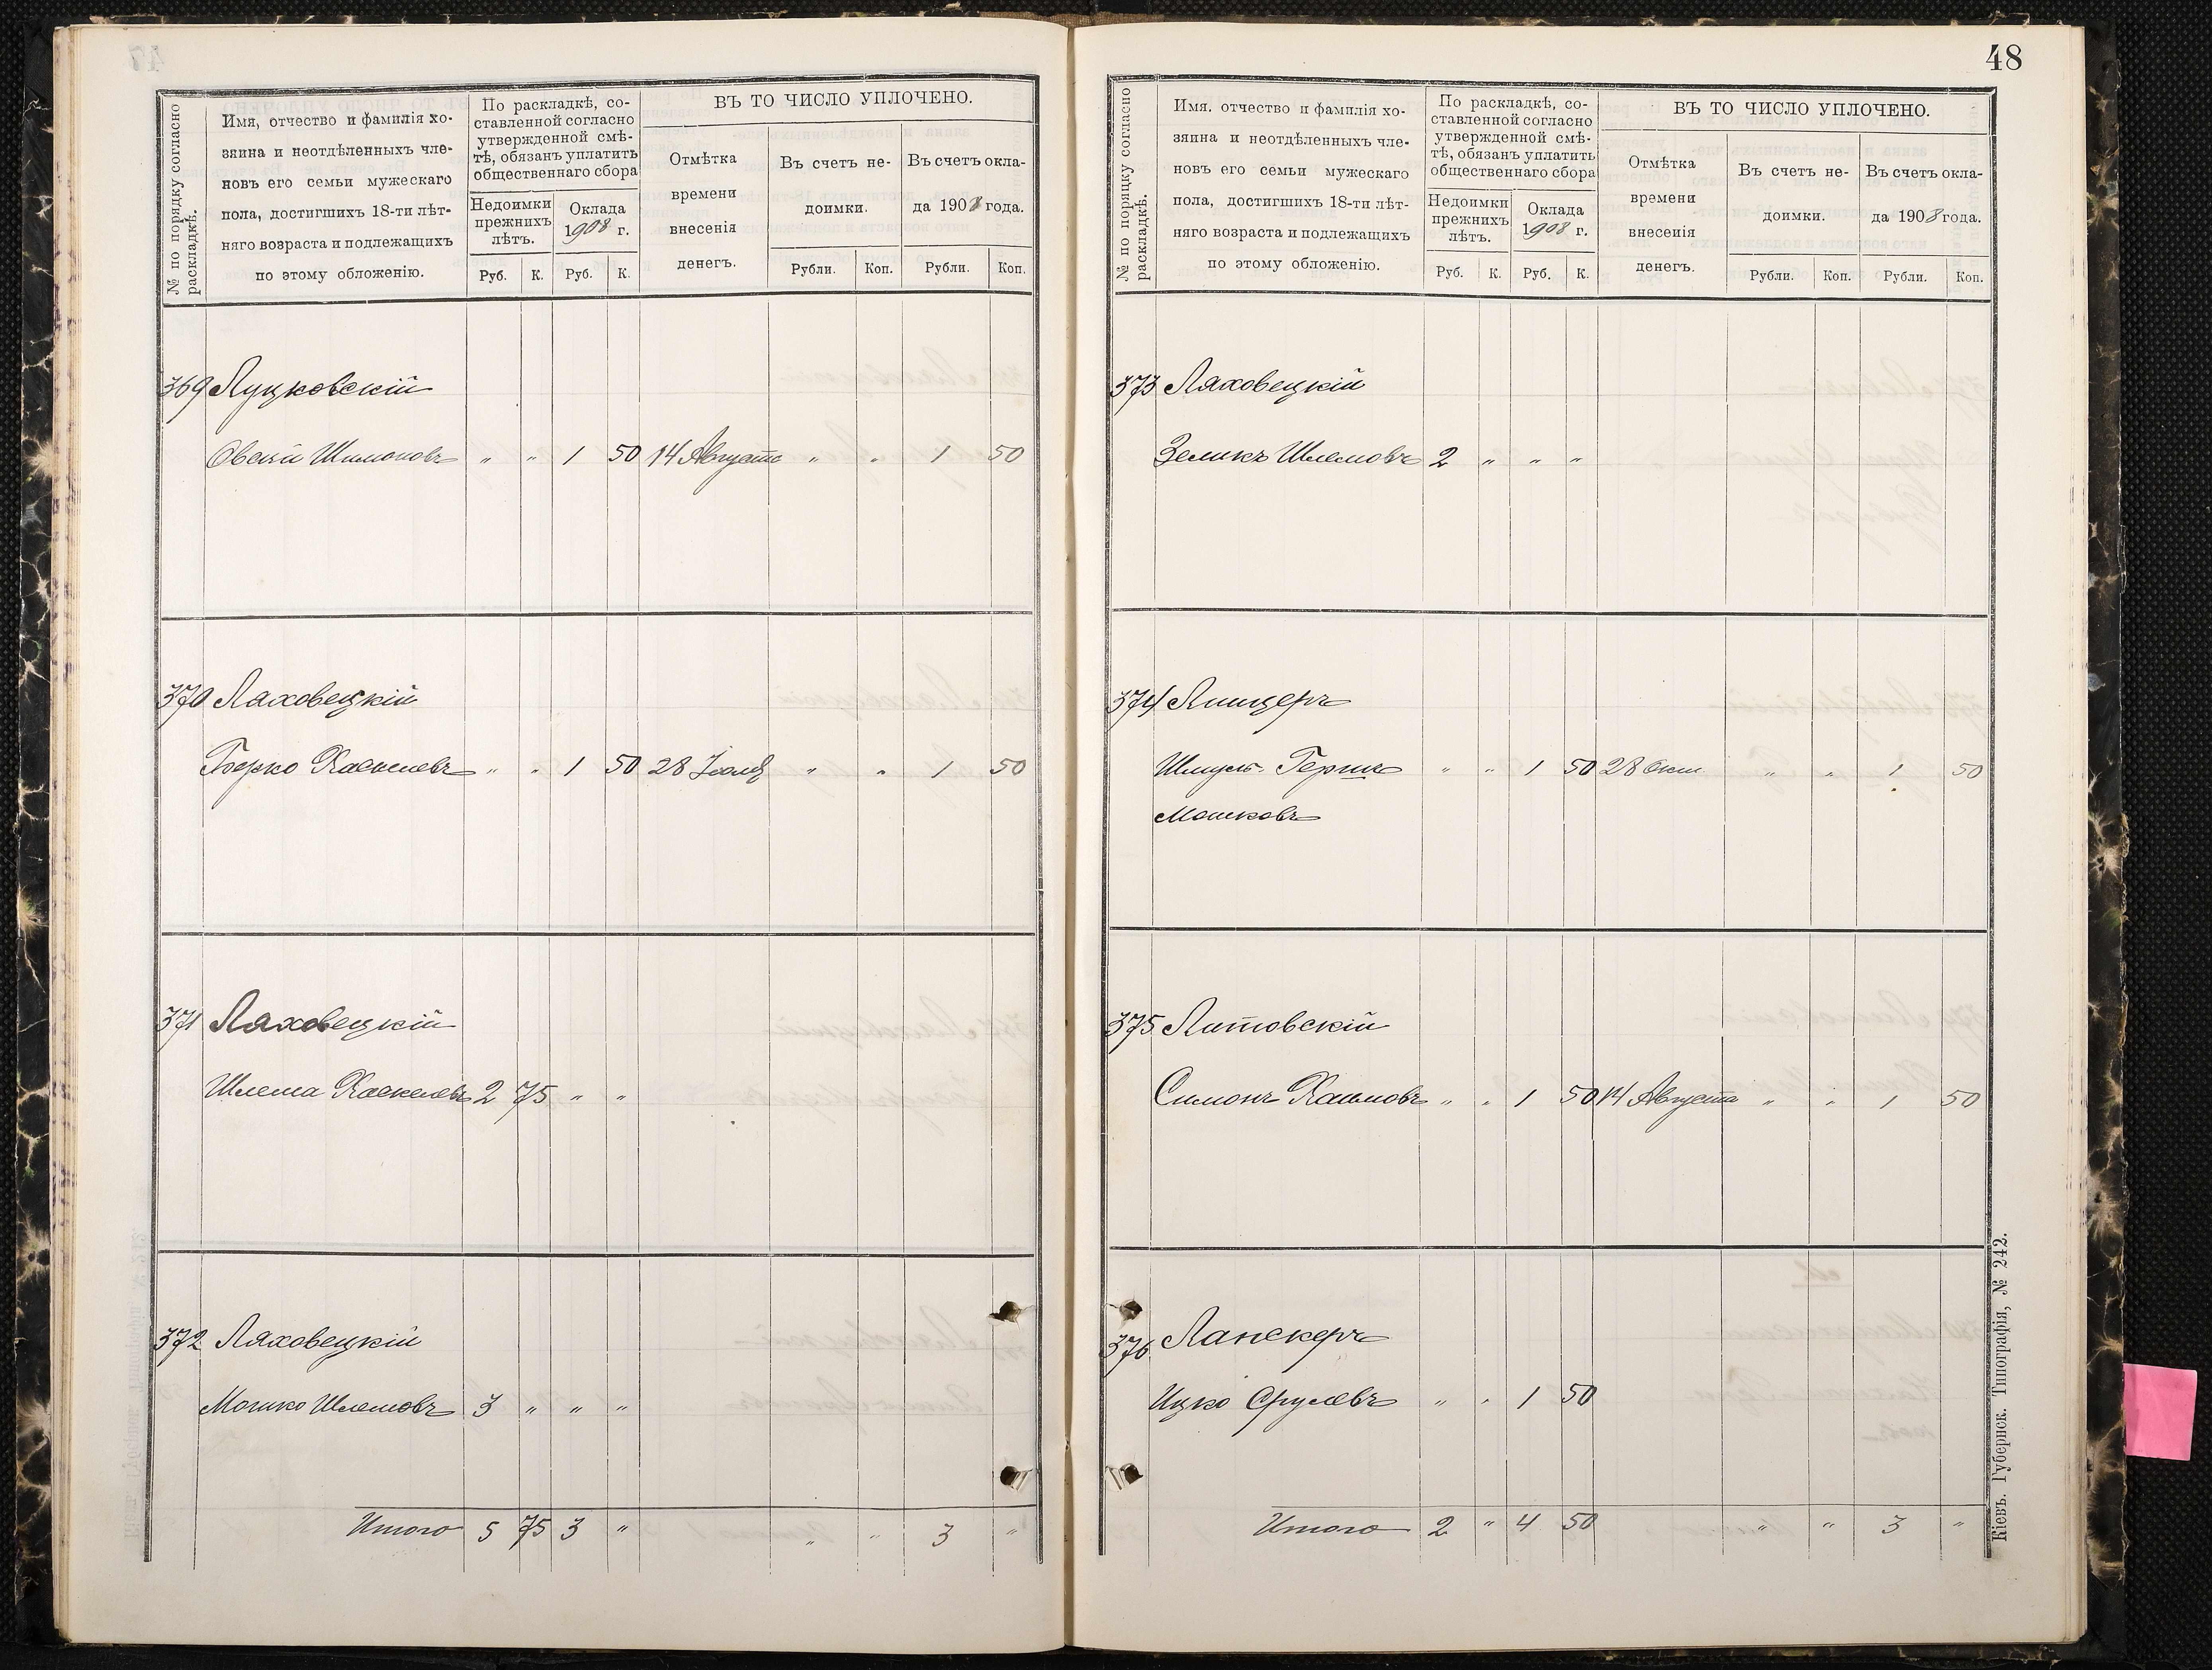 № по порядку согласно раскладкѣ.
Имя, отчество и фамилія хо-
зяина и неотдѣленныхъ чле-
новъ его семьи мужескаго
пола, достигшихъ 18-ти лѣт-
няго возраста и подлежащихъ
по этому обложенію.
По раскладкѣ, со-
ставленной согласно
утвержденной смѣ-
тѣ, обязанъ уплатить
общественнаго сбора
Недоимки
прежнихъ
лѣтъ.
Оклада
1908 г.
Руб. К. Руб. К.
ВЪ ТО ЧИСЛО УПЛОЧЕНО.
Отмѣтка
времени
внесенія
денегъ.
Въ счетъ не-
доимки.
Рубли. Коп.
Въ счетъ окла-
да 1908 года.
Рубли. Коп.
369 Луцковскій
Овсій Шимоновъ " " 1 50 14 Августа " " 1 50
370 Ляховецкій
Берко Хаскелевъ " " 1 50 28 Іюля " " 1 50
371 Ляховецкій
Шлема Хаскелевъ 2 75 " "
372 Ляховецкій
Мошко Шлемовъ 3 " " "
Итого 5 75 3 " " " 3 "
48
№ по порядку согласно раскладкѣ.
Имя. отчество и фамилія хо-
зяина и неотдѣленныхъ чле-
новъ его семьи мужескаго
пола, достигшихъ 18-ти лѣт-
няго возраста и подлежащихъ
по этому обложенію.
По раскладкѣ, со-
ставленной согласно
утвержденной смѣ-
тѣ, обязанъ уплатить
общественнаго сбора
Недоимки
прежнихъ
лѣтъ.
Оклада
1908 г.
Руб. К. Руб. К.
ВЪ ТО ЧИСЛО УПЛОЧЕНО.
Отмѣтка
времени
внесенія
денегъ.
Въ счетъ не-
доимки.
Рубли. Коп.
Въ счетъ окла-
да 1908 года.
Рубли. Коп.
373 Ляховецкій
Зеликъ Шлемовъ 2 " " "
374
Шмуль-Гершко " " 1 50 28 Окт " " 1 50
Мошковъ
375 Литовскій
Симонъ Хаимовъ " " 1 50 14 Августа " " 1 50
376 Ланскеръ
Ицко Срулевъ " " 1 50
Итого 2 " 4 50 " " 3 "
Кіевъ. Губернск. Типографія, № 242.